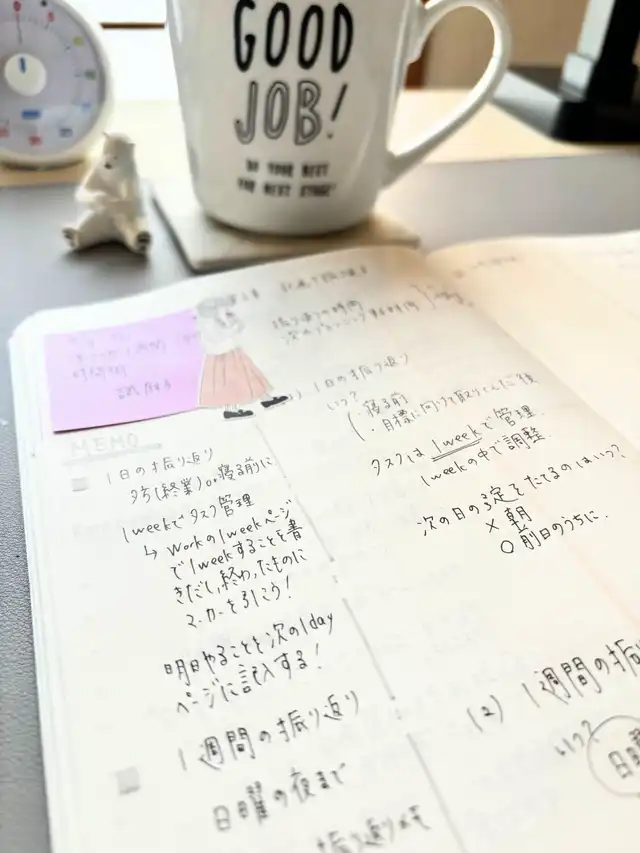 GOOD
JOB!
DO YOUR BEST
MEMO
1日の振り返り
夕ち(終業)or寝る前に
1weekでタスク管理
↳ Workの1weekページ
で1weekすることを書
きだし、終わったものに
マーカーを引こう!
明日やることを次の1day
ページに記入する!
1週間の振り返り
日曜の夜まで
振り返りメモ
振り返りの時間
1日の振り返り
いつ?
・寝る前
・目標に向けて取りくんだ後
タスクは1weekで管理
1weekの中で調整
次の日の予定をたてるのはいつ?
× 朝
○ 前日のうちに.
(2) 1週間の振
いつ?
日曜